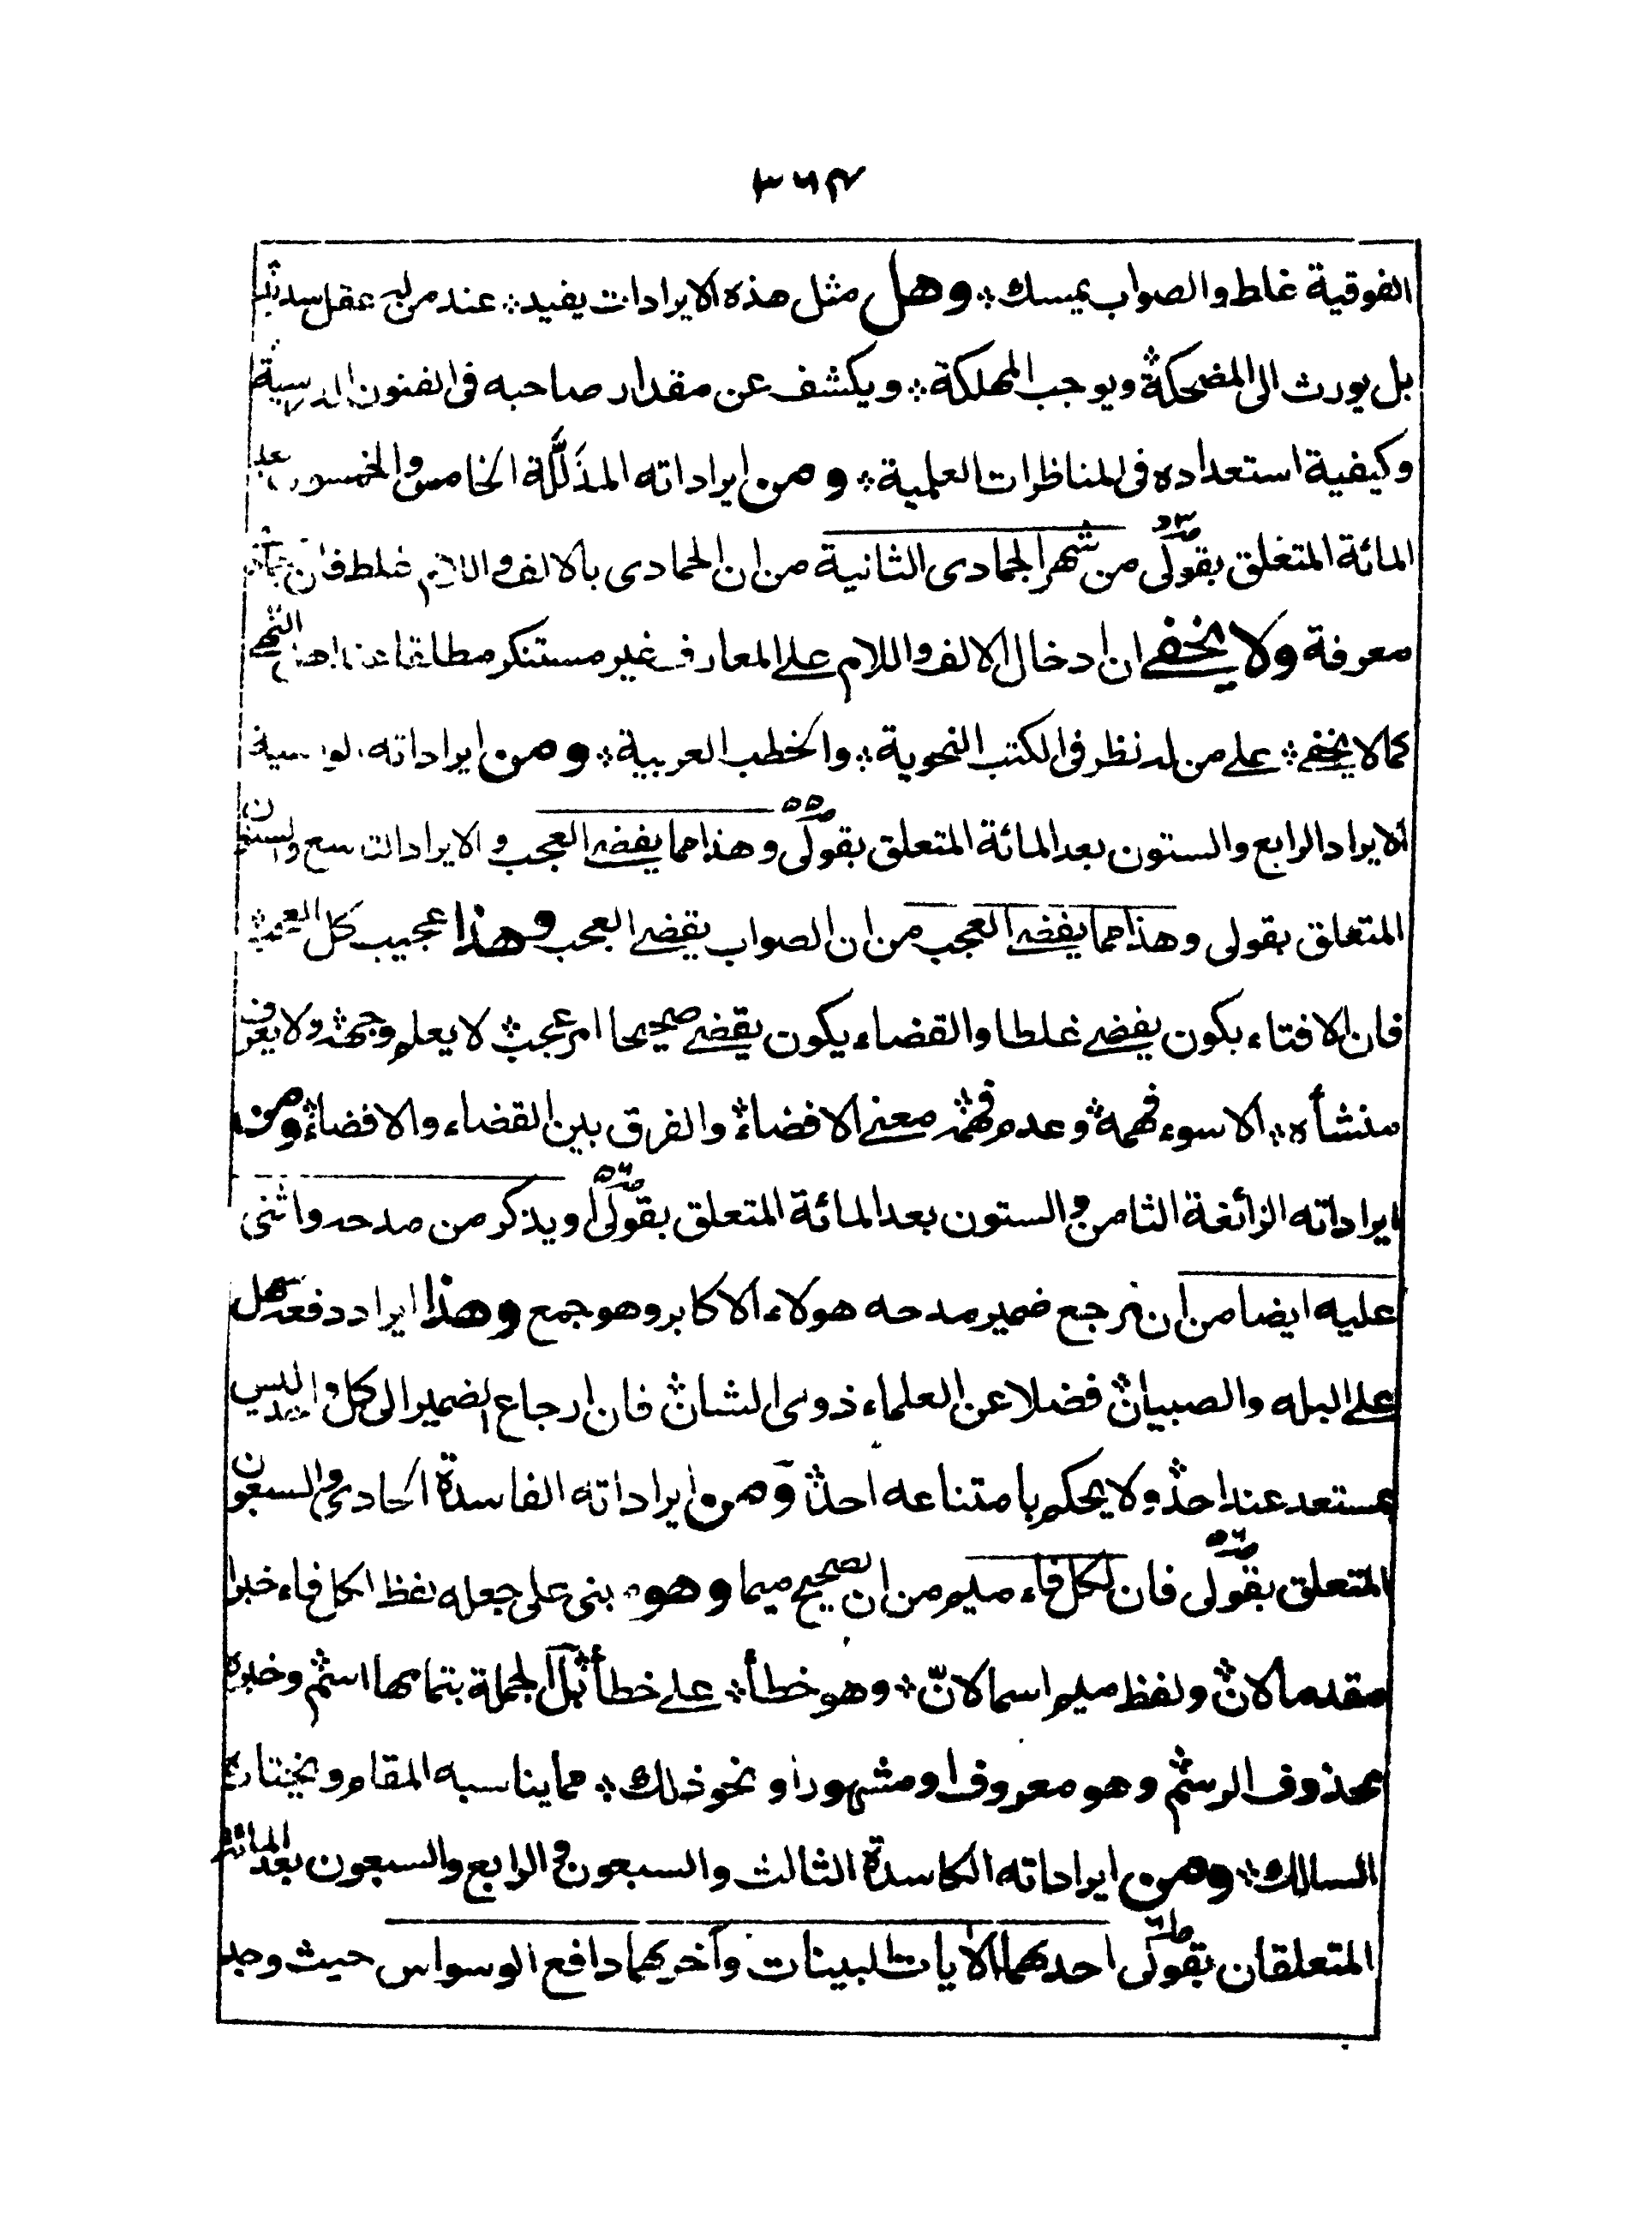 ٣٦٤
الفوقية غلط والصواب يمسك ؞ وهل مثل هذه الايرادات يفيد ؞ عند من له عقل سديد
بل يورث الى المضحكة ويوجب المهلكة ؞ ويكشف عن مقدار صاحبه فى الفنون الدرسية
وكيفية استعداده فى المناظرات العلمية ؞ ومن ايراداته المذللة الخامس والخمسون بعد
المائة المتعلق بقولى من شهر الجمادى الثانية من ان الجمادى بالالف واللام غلط فان جمادى
معرفة ولا يخفى ان ادخال الالف واللام على المعارف غير مستنكر مطلقا عند اهل النهى
كما لا يخفى ؞ على من له نظر فى الكتب النحوية ؞ والخطب العربية ؞ ومن ايراداته
الايراد الرابع والستون بعد المائة المتعلق بقولى وهذا مما يفضى العجب والايراد التاسع والستون
المتعلق بقولى وهذا مما يفضى العجب من ان الصواب يقضى العجب وهذا عجيب كل العجب
فان الافتاء بكون يفضى غلطا والقضاء يكون يقضى صحيحا امر عجب لا يعلم وجهه ولا يعرف
منشأه ؞ الا سوء فهمه وعدم فهمه معنى الافضاء والفرق بين القضاء والافضاء ومن
ايراداته الزائغة الثامن والستون بعد المائة المتعلق بقولى اويذكر من مدحه واثنى
عليه ايضا من ان مرجع ضمير مدحه هولاء الاكابر وهو جمع وهذا ايراد دفعه سهل
على البله والصبيان فضلا عن العلماء ذوى الشان فان ارجاع الضمير الى كل واحد ليس
بمستعد عند احد ولا يحكم بامتناعه احد ومن ايراداته الفاسدة الحادى والسبعون
المتعلق بقولى فان لكل فاء ميم من ان الصحيح ميما وهو بنى على جعله لفظ لكل فاء خبرا
مقدما لان ولفظ ميم اسما لان ؞ وهو خطأ ؞ على خطأ بل الجملة بتمامها اسم وخبره
محذوف الرسم وهو معروف او مشهور او نحو ذلك ؞ مما يناسبه المقام ويختاره
السالك ؞ ومن ايراداته الكاسدة الثالث والسبعون والرابع والسبعون بعد المائة
المتعلقان بقولى احدهما الآيات البينات وآخرهما دافع الوسواس حيث وجد